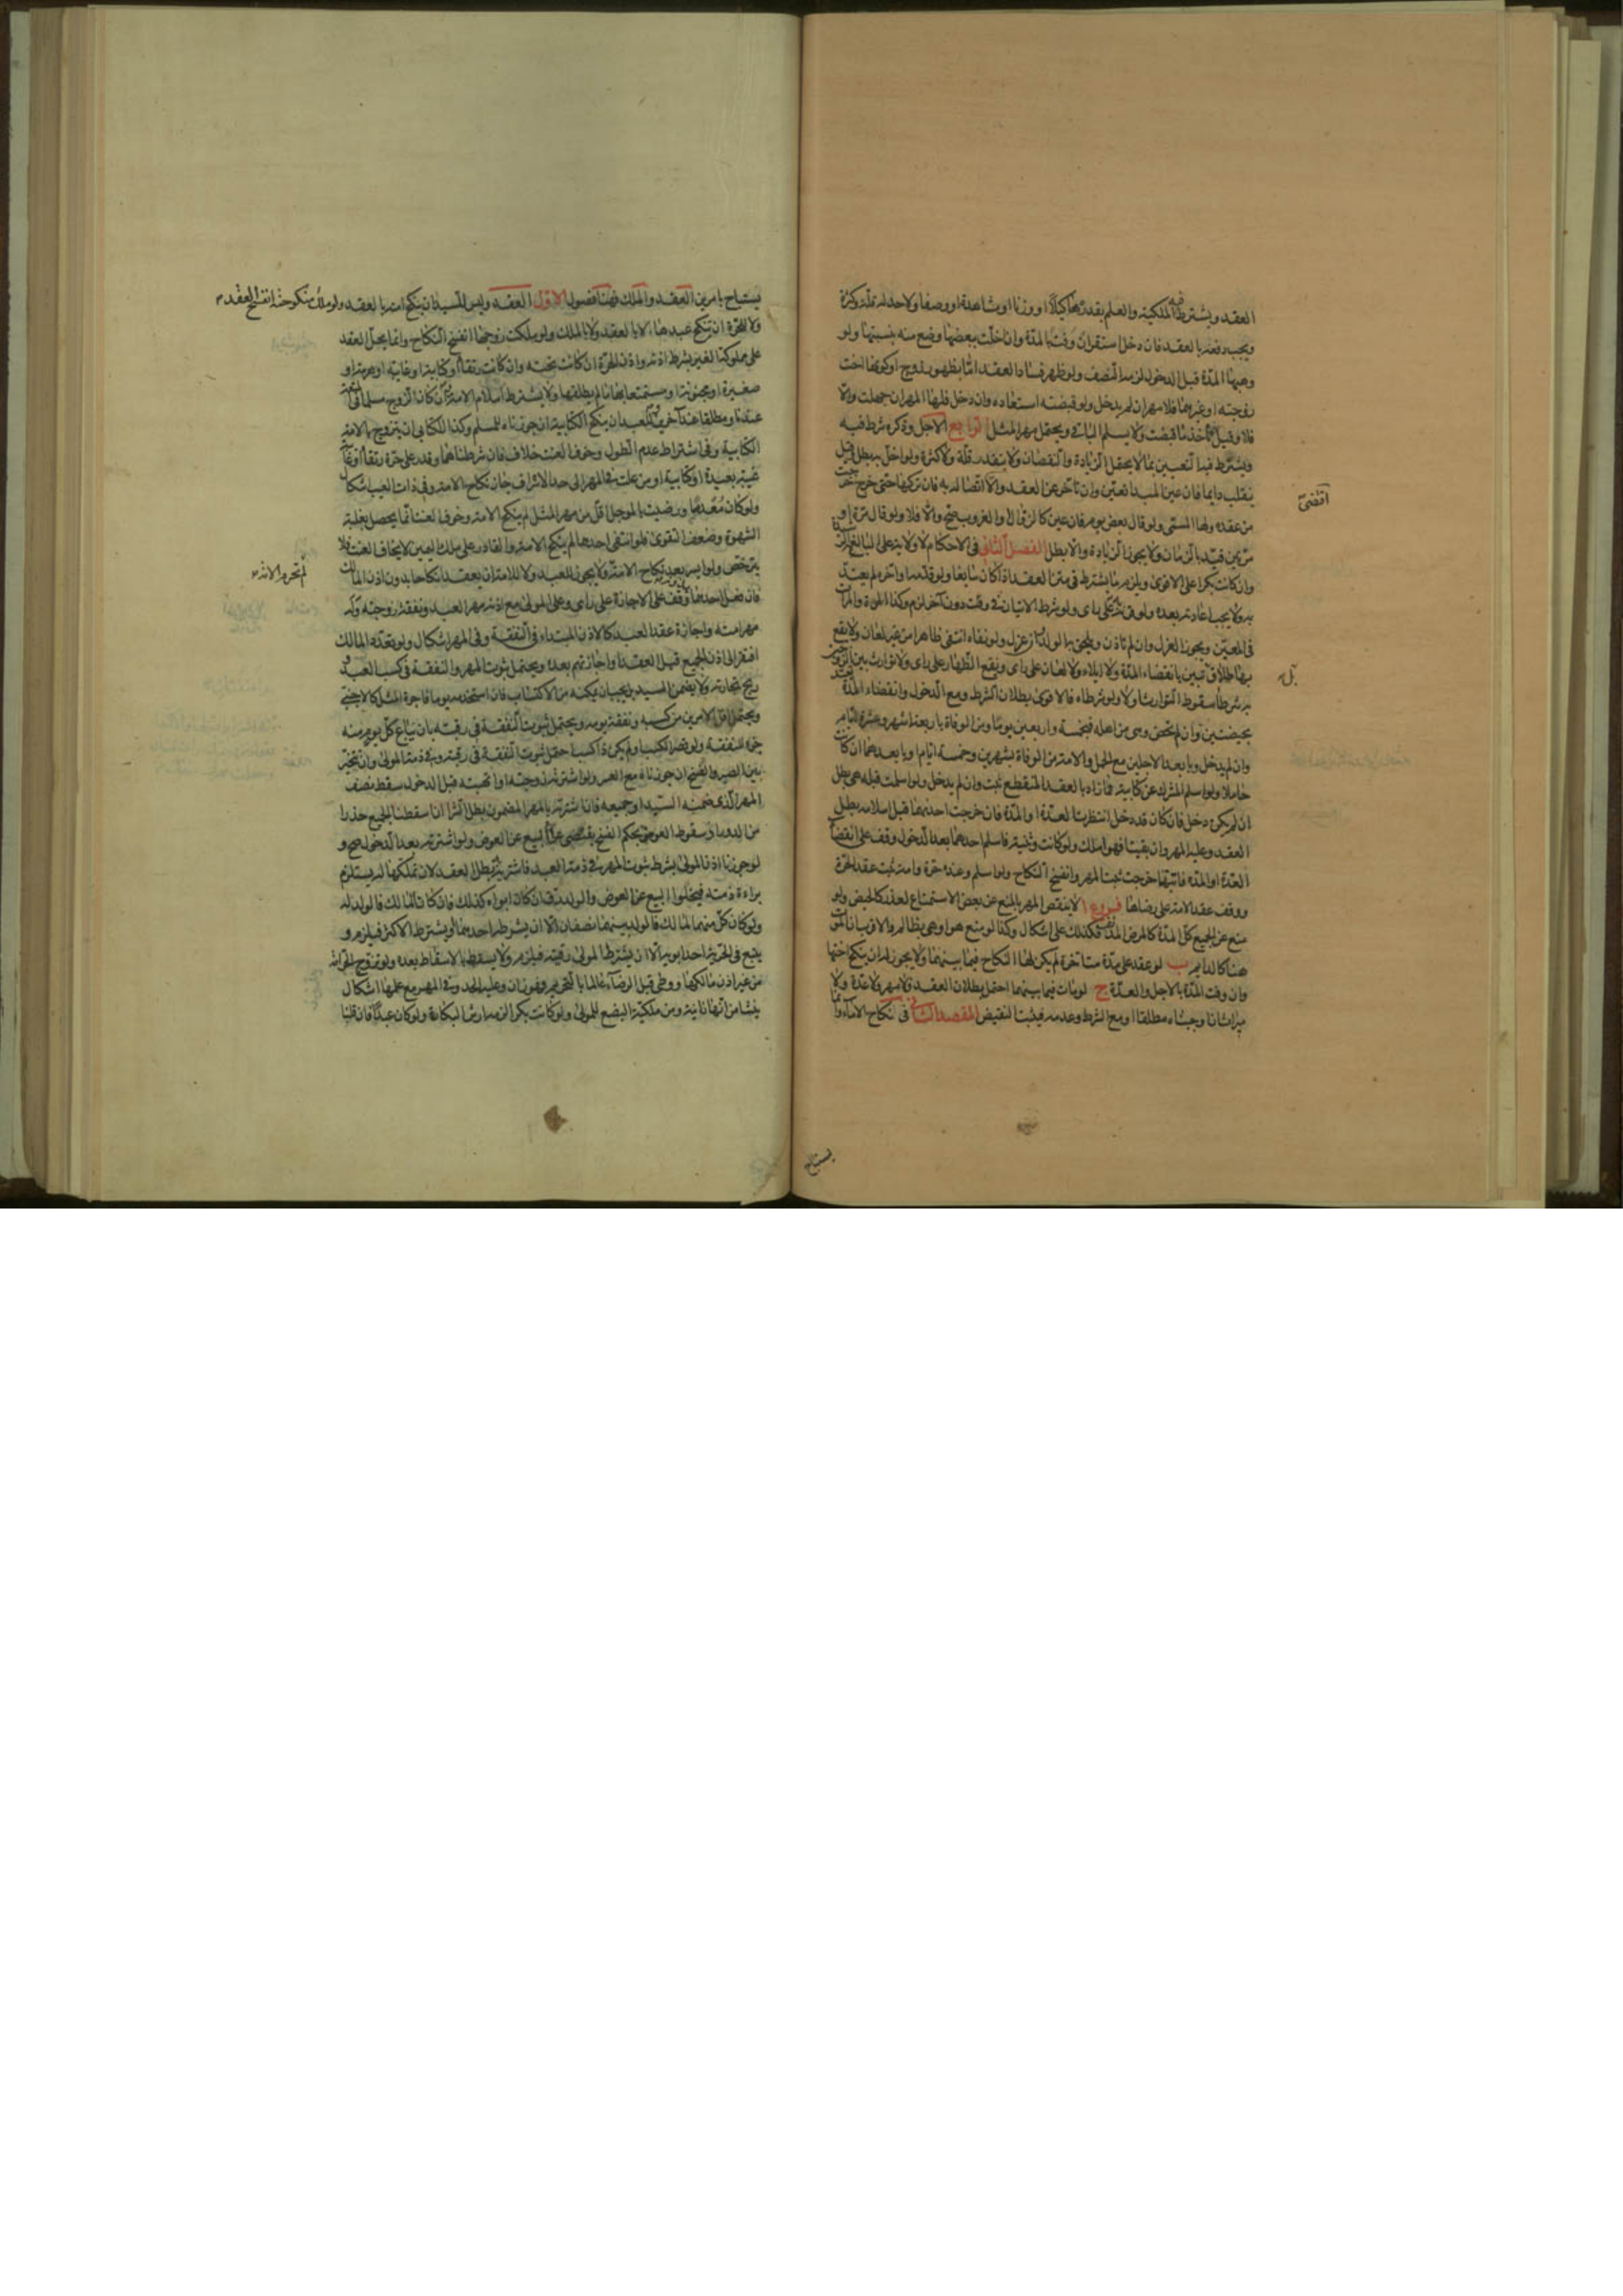 العقد ويشترط فيه الملكية والعلم بقدره اما كيلا او وزنا او مشاهدة او وصفا ولا حد له قلة وكثرة
ويجب دفعه بالعقد فان دخل استقر ان وفت بالمدة وان اخلت ببعضها وضع منه بنسبتها ولو
وهبها المدة قبل الدخول لزمه النصف ولو ظهر فساد العقد اما بظهور زوج او كونها اخت
زوجته او غيرهما فلا مهر ان لم يدخل ولو قبضته استعاده وان دخل فلها المهر ان جهلت والا
فلا وقيل تأخذ ما قبضت ولا يسلم الباقي ويحتمل مهر المثل الرابع الاجل وذكره شرط فيه
ويشترط فيه التعيين بما لا يحتمل الزيادة والنقصان ولا يتقدر قلة ولا كثرة ولو اخل به بطل وقيل
ينقلب دايما فان عين المبدا تعين وان تاخر عن العقد والا اتصاله به فان تركها حتى خرج خرجت
من عقده ولها المسمى ولو قال بعض يوم فان عين كالزوال او الغروب صح والا فلا ولو قال مرة او
مرتين قيد بالزمان ولا يجوز الزيادة والا بطل الفصل الثاني في الاحكام لا ولاية على البالغ الرشيدة
وان كانت بكرا على الاقوى ويلزم ما يشترط في متن العقد اذا كان سايغا ولو قدمه او اخره لم يعتد
به ولا يجب اعادته بعده ولو قرن على راى ولو شرط الاتيان في وقت دون آخر لزم وكذا المرة والمرات
في المعين ويجوز العزل وان لم تاذن ويلحق به الولد وان عزل ولو نفاه انتفى ظاهرا من غير لعان ولا يقع
بها طلاق تبين بانقضاء المدة ولا ايلاء ولا لعان على راى ويقع الظهار على راى ولا توارث بين الزوجين
به شرطا سقوط التوارث او لا ولو شرطاه فالاقوى بطلان الشرط ومع الدخول وانقضاء المدة تعتد
بحيضتين وان لم تحض وهي من اهله فبخمسة واربعين يوما ومن الوفاة باربعة اشهر وعشرة ايام
وان لم يدخل وبابعد الاجلين مع الحمل والامة من الوفاة بشهرين وخمسة ايام وبابعدهما ان كانت
حاملا ولو اسلم المشرك عن كتابية فما زاد بالعقد المنقطع ثبت وان لم يدخل ولو اسلمت قبله هي بطل
ان لم يكن دخل فان كان قد دخل انتظرت العدة او المدة فان خرجت احديهما قبل اسلامه بطل
العقد وعليه المهر وان بقيتا فهو املك ولو كانت وثنية فاسلم احدهما بعد الدخول وقف على انقضاء
العدة او المدة فايتهما خرجت ثبت المهر وانفسخ النكاح ولو اسلم وعنده حرة وامة ثبت عقد الحرة
ووقف عقد الامة على رضاها فروع ا لا ينقص المهر بالمنع عن بعض الاستمتاع لعذر كالحيض ولو
منع عن الجميع كل المدة كالمرض المدنف فكذلك على اشكال وكذا لو منع هو او هي بظالم والاقرب ان الموت
هنا كالدايم ب لو عقد على مدة متاخرة لم يكن لها النكاح فيما بينهما ولا يجوز له ان ينكح اختها
وان وفت المدة بالاجل والعدة ج لو مات فيما بينهما احتمل بطلان العقد فلا مهر ولا عدة ولا
ميراث ان اوجبناه مطلقا او مع الشرط وعدمه فيثبت النقيض المقصد الثاني في نكاح الاماء وانما
اقتضى
بل
يستباح
يستباح بامرين العقد والملك فهنا فصول الاول العقد وليس للسيد ان ينكح امته بالعقد ولو ملك منكوحته انفسخ العقد
ولا للحرة ان تنكح عبدها لا بالعقد ولا بالملك ولو ملكت زوجها انفسخ النكاح وانما يحل العقد
على مملوكة الغير بشرط اذنه واذن الحرة ان كانت تحته وان كانت رتقاء او كتابية او غايبة او هرمة او
صغيرة او مجنونة او مستمتعا بها ما لم يطلقها ولا يشترط اسلام الامة ان كان الزوج مسلما في المتعة
عندنا ومطلقا عند آخرين وللعبد ان ينكح الكتابية ان جوزناه للمسلم وكذا الكتابي ان يتزوج بالامة
الكتابية وفي اشتراط عدم الطول وخوف العنت خلاف فان شرطناهما وقدر على حرة رتقاء او غايبة
غيبة بعيدة او كتابية او من غلت في المهر الى حد الاسراف جاز نكاح الامة وفي ذات العيب اشكال
ولو كان معدما ورضيت بالمؤجل اقل من مهر المثل لم ينكح الامة وخوف العنت انما يحصل بغلبة
الشهوة وضعف التقوى فلو انتفى احدهما لم ينكح الامة والقادر على ملك اليمين لا يخاف العنت فلا
يترخص ولو ايسر بعد نكاح الامة ولا يجوز للعبد ولا للامة ان يعقدا نكاحا بدون اذن المالك
لم تحرم الامة
فان فعل احدهما وقف على الاجازة على راى وعلى المولى مع اذنه مهر العبد ونفقة زوجته وله
مهر امته واجازة عقد العبد كالاذن المبتداء في النفقة وفي المهر اشكال ولو تعدد المالك
افتقر الى اذن الجميع قبل العقد او اجازتهم بعده ويحتمل ثبوت المهر والنفقة في كسب العبد و
ربح تجارته ولا يضمن السيد بل يجب ان يمكنه من الاكتساب فان استخدمه يوما فاجرة المثل كالاجنبي
ويحتمل اقل الامرين من كسبه ونفقة يومه ويحتمل ثبوت النفقة في رقبته بان يباع كل يوم منه
جزء للنفقة ولو قصر الكسب او لم يكن ذا كسب احتمل ثبوت النفقة في رقبته وفي ذمة المولى وان تتخير
بين الصبر والفسخ ان جوزناه مع العسر ولو اشترته زوجته او اتهبته قبل الدخول سقط نصف
المهر الذي ضمنه السيد او جميعه فان اشترته بالمهر المضمون بطل الشرا ان اسقطنا الجميع حذرا
من الدور اذ سقوط العوض بحكم الفسخ يقتضي عراء البيع عن العوض ولو اشترته بعد الدخول صح و
لو جوزنا اذن المولى بشرط ثبوت المهر في ذمة العبد فاشترته به بطل العقد لان تملكها له يستلزم
براءة ذمته فيخلوا البيع عن العوض والولد رق ان كان ابواه كذلك فان كانا لمالك فالولد له
ولو كان كل منهما لمالك فالولد بينهما نصفان الا ان يشترطه احدهما او يشترط الاكثر فيلزم و
يتبع في الحرية احد ابويه الا ان يشترط المولى رقيته فيلزم ولا يسقط بالاسقاط بعده ولو تزوج الحر امة
من غير اذن مالكها ووطئ قبل الرضاء عالما بالتحريم فهو زان وعليه الحد وفي المهر مع علمها اشكال
ينشا من انها زانية ومن ملكية البضع للمولى ولو كانت بكرا لزمه ارش البكارة ولو كان عبدا فان قلنا